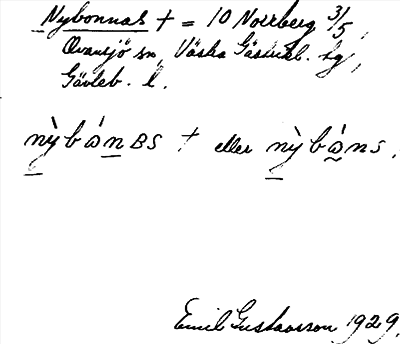 Nybonnas † = 10 Norrberg 3/5,
Ovansjö sn, Västra Gästrikl. tg,
Gävleb. l.
nỳbɷ́nʙs † eller nỳbɷ́ns.
Emil Gustavsson 1929.